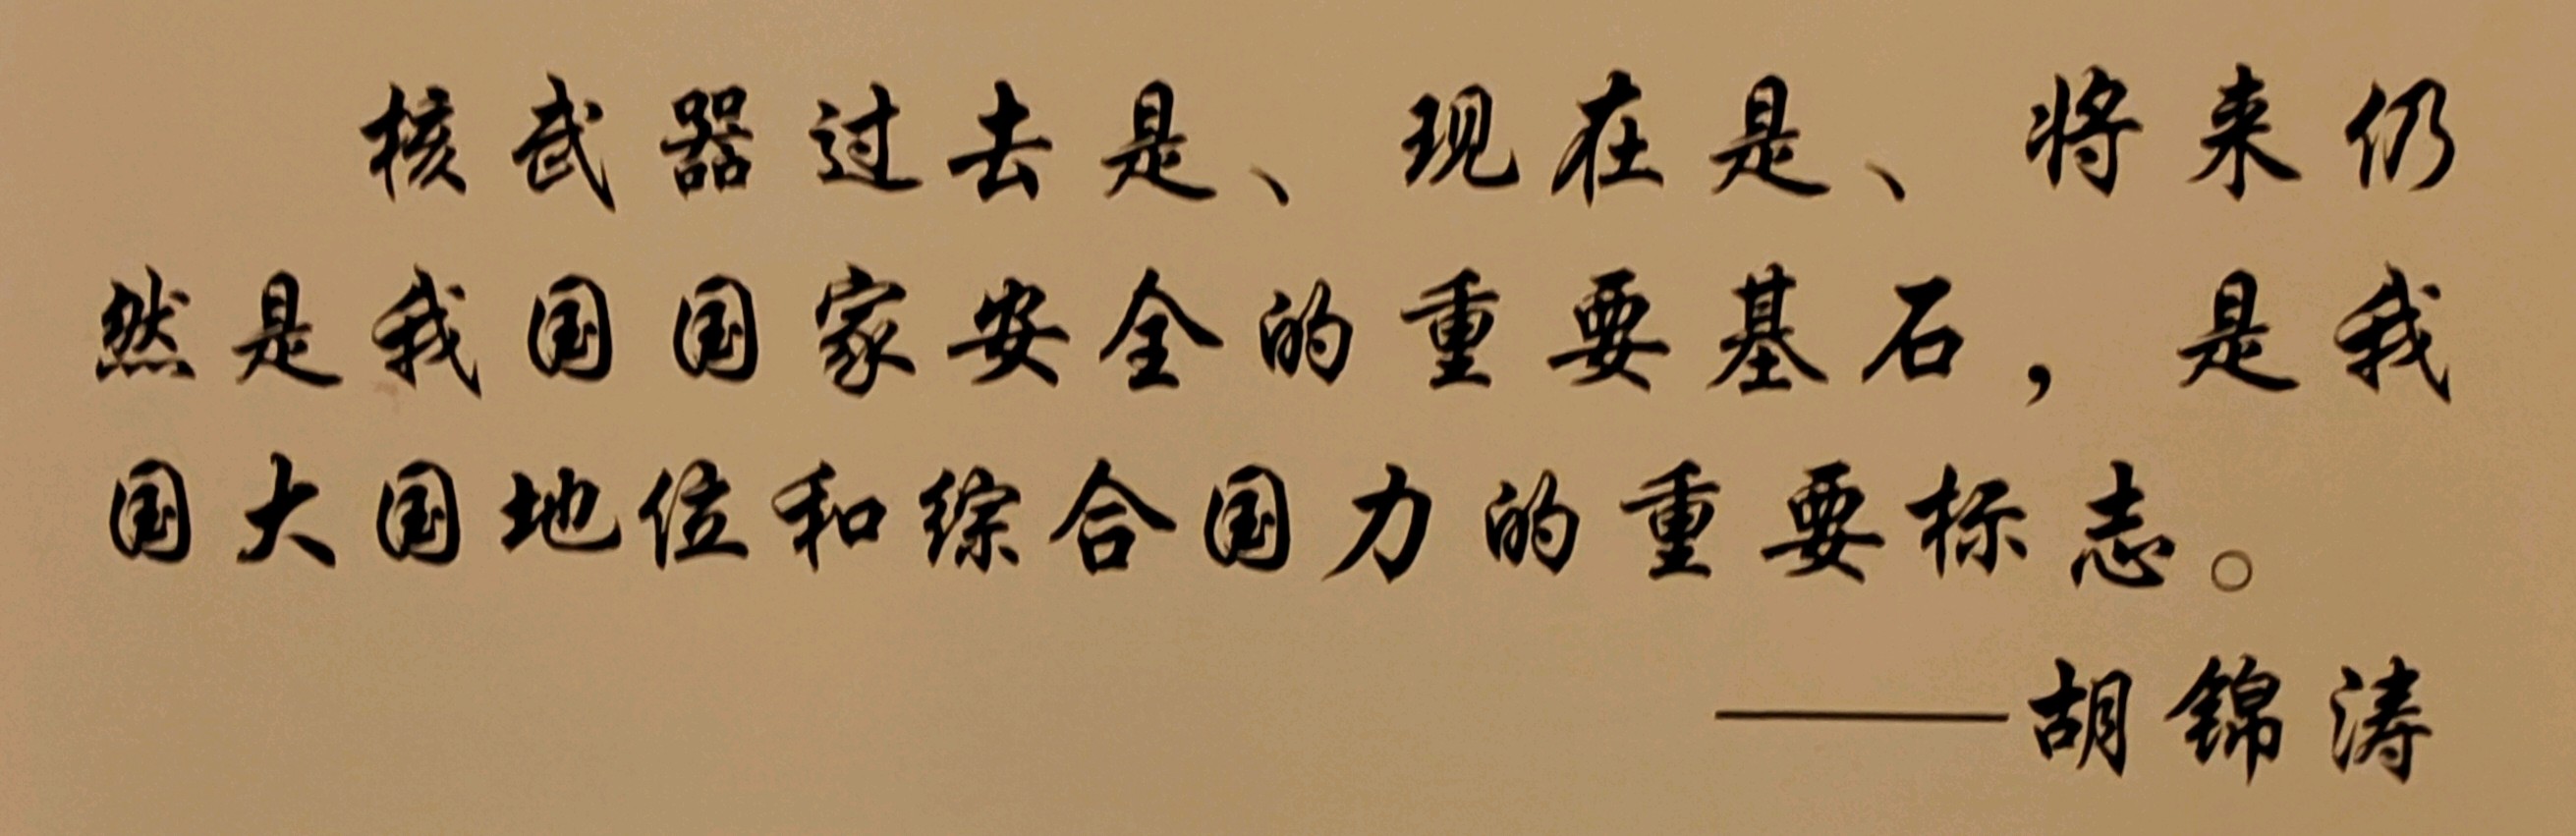 核武器过去是、现在是、将来仍
然是我国国家安全的重要基石，是我
国大国地位和综合国力的重要标志。
——胡锦涛